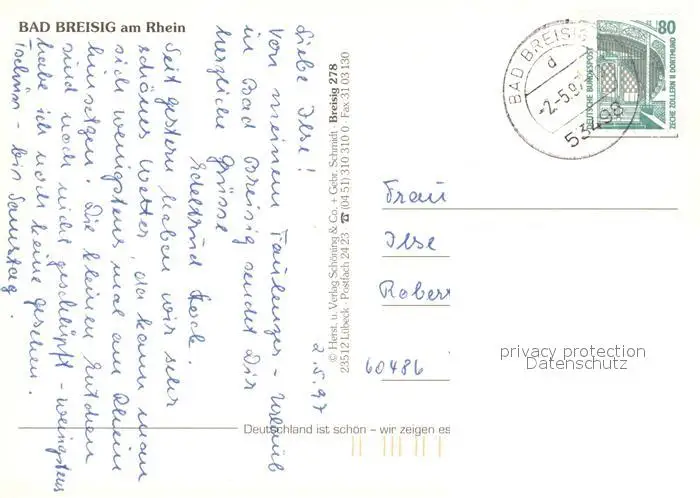 BAD BREISIG am Rhein
2.5.97
Liebe Ilse!
Von meinem Faulenzer-Urlaub
in Bad Breisig sendet Dir
herzliche Grüsse
Edeltrud
Seit gestern haben wir sehr
schönes Wetter, da kann man
sich wenigstens mal am Rhein
hinsetzen. Die kleinen Entchen
sind noch nicht geschlüpft - wenigstens
habe ich noch keine gesehen.
Tschüss - bis Samstag.
© Herst. u. Verlag Schöning & Co. + Gebr. Schmidt · Breisig 278
23512 Lübeck · Postfach 24 23 ☎ (04 51) 310 310 0 · Fax 31 03 130
BAD BREISIG
d
-2.-5.97
53498
80
DEUTSCHE BUNDESPOST
ZECHE ZOLLERN II DORTMUND
Frau
Ilse
Rober
60486
privacy protection
Datenschutz
Deutschland ist schön – wir zeigen es